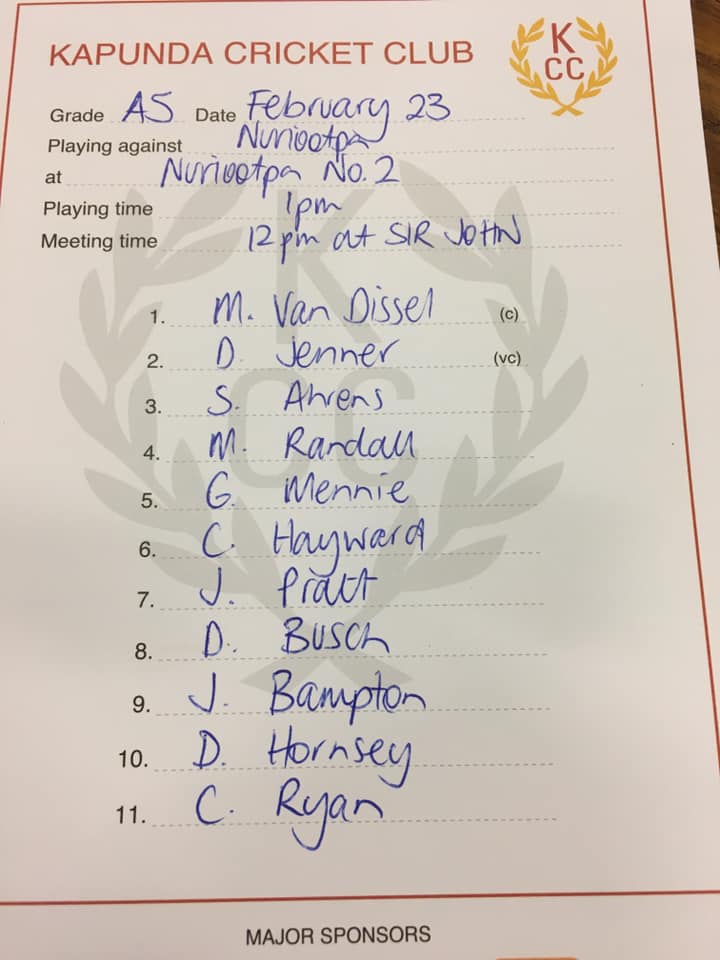 KAPUNDA CRICKET CLUB
K
CC
Grade A5 Date February 23
Playing against Nuriootpa
at Nuriootpa No. 2
Playing time 1pm
Meeting time 12pm at SIR JOHN
K
CC
1. M. Van Dissel (c)
2. D. Jenner (vc)
3. S. Ahrens
4. M. Randall
5. G. Mennie
6. C. Hayward
7. J. Pratt
8. D. Busch
9. J. Bampton
10. D. Hornsey
11. C. Ryan
MAJOR SPONSORS